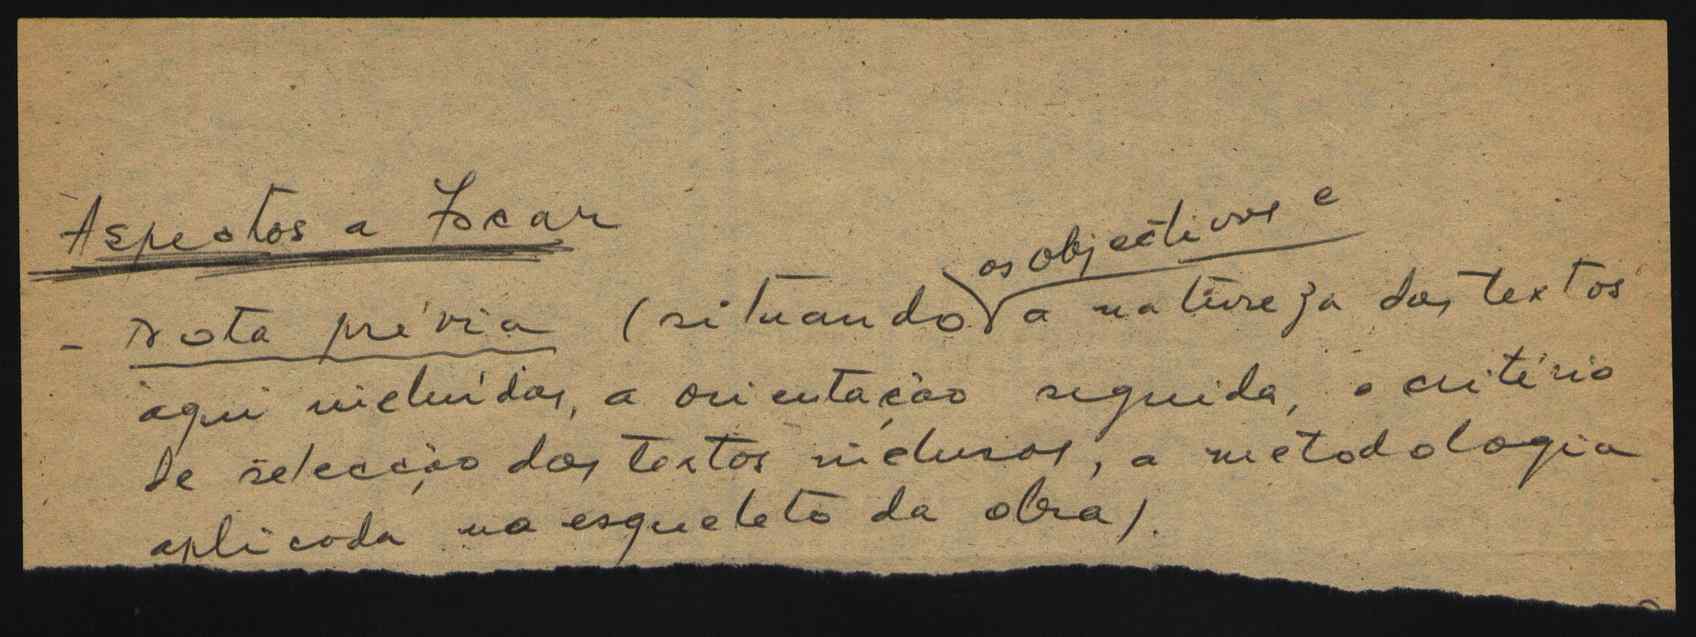 Aspectos a Focar
os objectivos e
- Nota prévia (situando a natureza dos textos
aqui incluídos, a orientação seguida, o critério
de selecção dos textos inclusos, a metodologia
aplicada no esqueleto da obra).